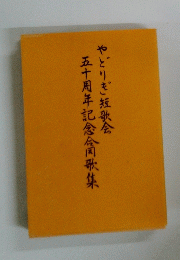 やどりぎ短歌会
五十周年記念合同歌集